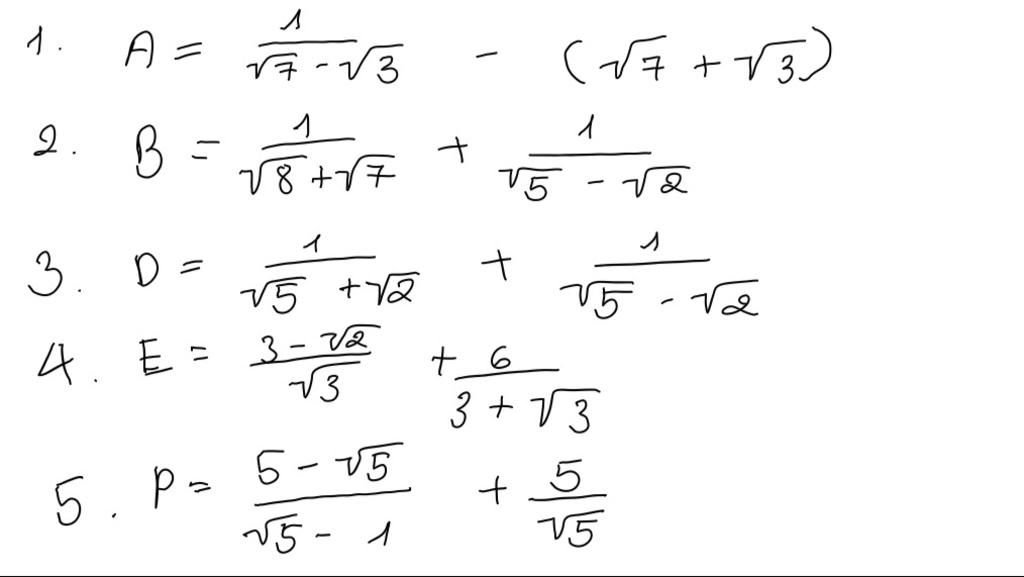 1. A = 1/(√7 - √3) - (√7 + √3)
2. B = 1/(√8 + √7) + 1/(√5 - √2)
3. D = 1/(√5 + √2) + 1/(√5 - √2)
4. E = (3 - √2)/√3 + 6/(3 + √3)
5. P = (5 - √5)/(√5 - 1) + 5/√5